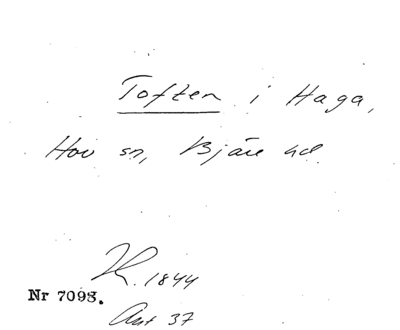 Toften i Haga,
Hov sn, Bjäre hd.
K. 1844
Nr 7093.
Ant 37